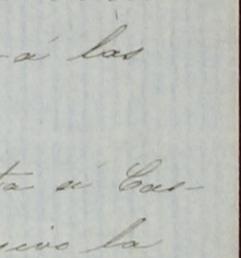 á las
ta á Cas-
sivo la